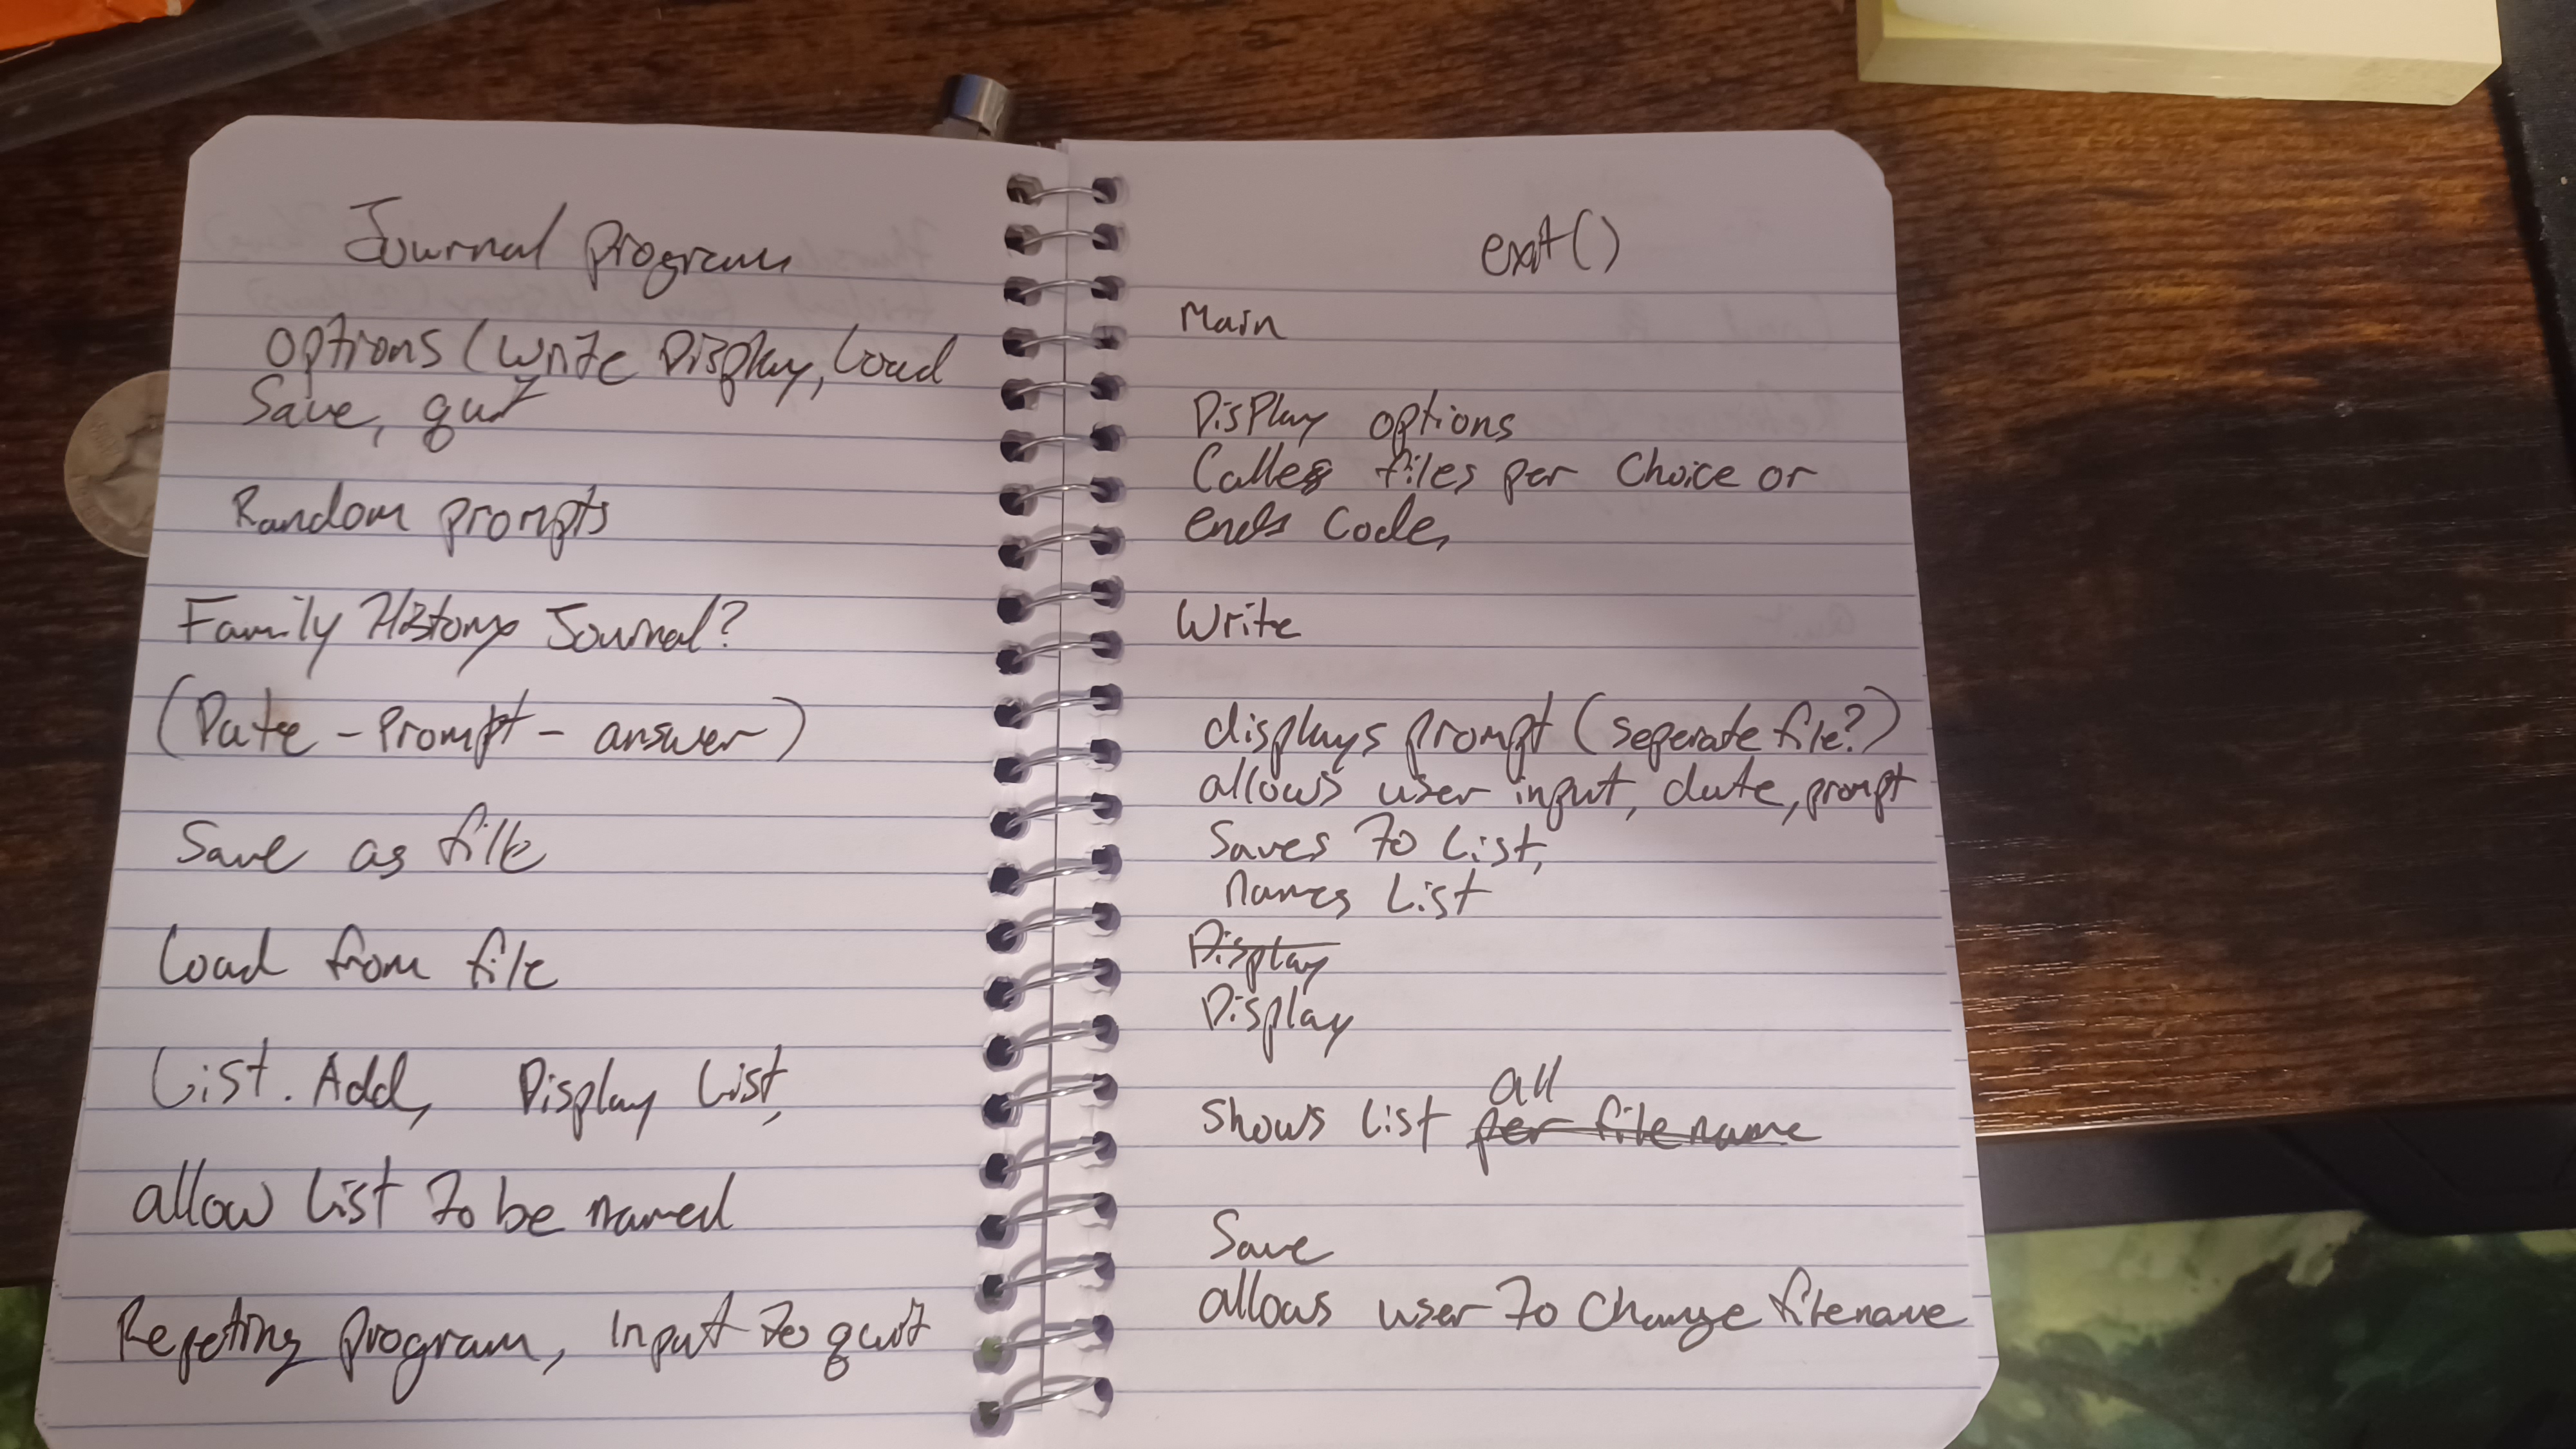 Journal Program
options (write Display, Load
Save, quit
Random prompts
Family History Journal?
(Date - Prompt - answer)
Save as file
Load from file
List. Add, Display List,
allow List to be named
Repeting Program, Input to quit
exit()
Main
Display options
Calles files per choice or
ends code,
Write
displays prompt (seperate file?)
allows user input, date, prompt
Saves to List,
names List
Display
Display
all
shows list per file name
Save
allows user to change filename